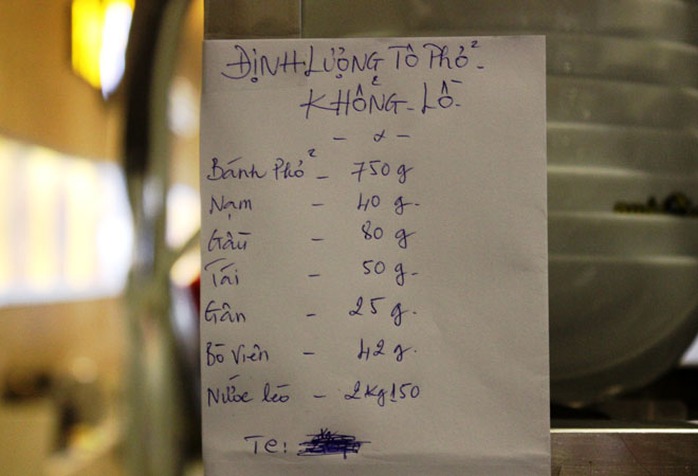 ĐỊNH LƯỢNG TÔ PHỞ
KHỔNG LỒ
Bánh Phở - 750 g
Nạm - 40 g.
Gầu - 80 g
Tái - 50 g.
Gân - 25 g.
Bò viên - 42 g.
Nước lèo - 2 Kg 150
TC: